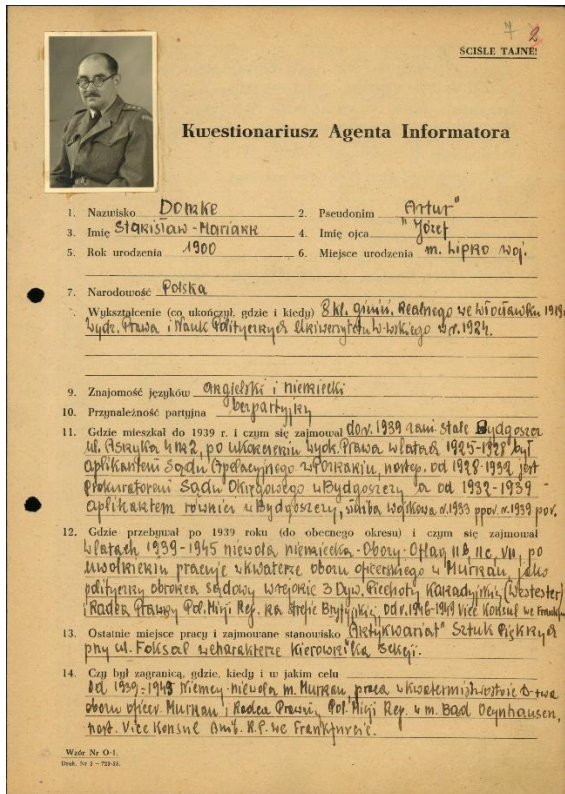 7 2
ŚCIŚLE TAJNE!
Kwestionariusz Agenta Informatora
1. Nazwisko Domke 2. Pseudonim "Artur"
3. Imię Stanisław-Marian 4. Imię ojca "Józef
5. Rok urodzenia 1900 6. Miejsce urodzenia m. Lipno woj.
7. Narodowość Polska
Wykształcenie (co ukończył, gdzie i kiedy) 8 kl. gimn. Realnego we Włocławku 1919.
Wydz. Prawa i Nauk Politycznych Uniwersytetu W-wskiego w r. 1924.
9. Znajomość języków angielski i niemiecki
10. Przynależność partyjna bezpartyjny
11. Gdzie mieszkał do 1939 r. i czym się zajmował do r. 1939 zam. stale Bydgoszcz
ul. Asnyka 4 m 2, po ukończeniu Wydz. Prawa w latach 1925-1928 był
aplikantem Sądu Apelacyjnego w Poznaniu, następ. od 1928-1932 jest
prokuratorem Sądu Okręgowego w Bydgoszczy a od 1932-1939
aplikantem również w Bydgoszczy, służba wojskowa r. 1933 ppor. r. 1939 por.
12. Gdzie przebywał po 1939 roku (do obecnego okresu) i czym się zajmował
w latach 1939-1945 niewola niemiecka - Obozy - Oflag II B, II c, VII, po
uwolnieniu pracuje w kwaterze obozu oficerskiego w Murnau, jako
polityczny obrońca sądowy w rejonie 3 Dyw. Piechoty Kanadyjskiej
i Radca Prawny Pol. Misji Rep. na strefie Brytyjskiej, od r. 1946-1949 Vice Konsul we Frankfur
13. Ostatnie miejsce pracy i zajmowane stanowisko "Antykwariat" Sztuk Pięknych
przy ul. Foksal w charakterze Kierownika Sekcji.
14. Czy był zagranicą, gdzie, kiedy i w jakim celu
Od 1939-1945 Niemcy-niewola m. Murnau, praca w kwatermistrzostwie D-twa
obozu oficer. Murnau, Radca Prawny Pol. Misji Rep. w m. Bad Oeynhausen,
nast. Vice Konsul Amb. R.P. we Frankfurcie.
Wzór Nr O-1.
Druk. Nr 2 – 723-53.